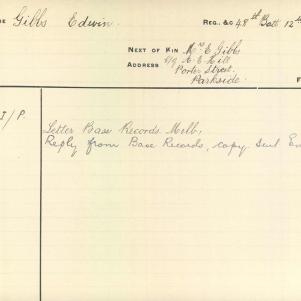 Gibbs Edwin. REG. &C 48th Batt 12th
NEXT OF KIN Mrs E Gibbs
ADDRESS c/o C. E. Hill
Porter Street.
Parkside.
F
I/P.
Letter Base Records Melb,
Reply from Base Records, copy Sent